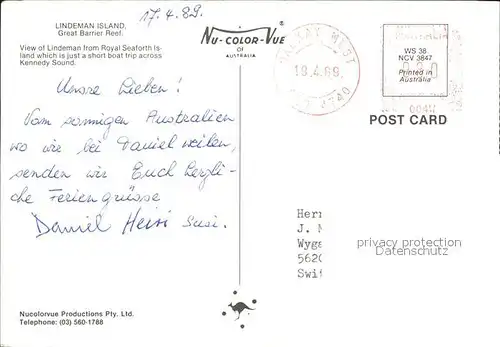 LINDEMAN ISLAND,
Great Barrier Reef.
View of Lindeman from Royal Seaforth Is
land which is just a short boat trip across
Kennedy Sound.
17.4.89.
Nu-COLOR-VUE®
of
AUSTRALIA
MACKAY MLBT
18.4.89.
QLD 4740
AUSTRALIA
WS 38
NCV 3847
Printed in
Australia
POST CARD
Unsre Lieben!
Vom sonnigen Australien
wo wir bei Daniel weilen,
senden wir Euch herzli-
che Feriengrüsse
Daniel Heiri Susi.
Herr
J.
Wyga
5620
Swit
privacy protection
Datenschutz
Nucolorvue Productions Pty. Ltd.
Telephone: (03) 560-1788